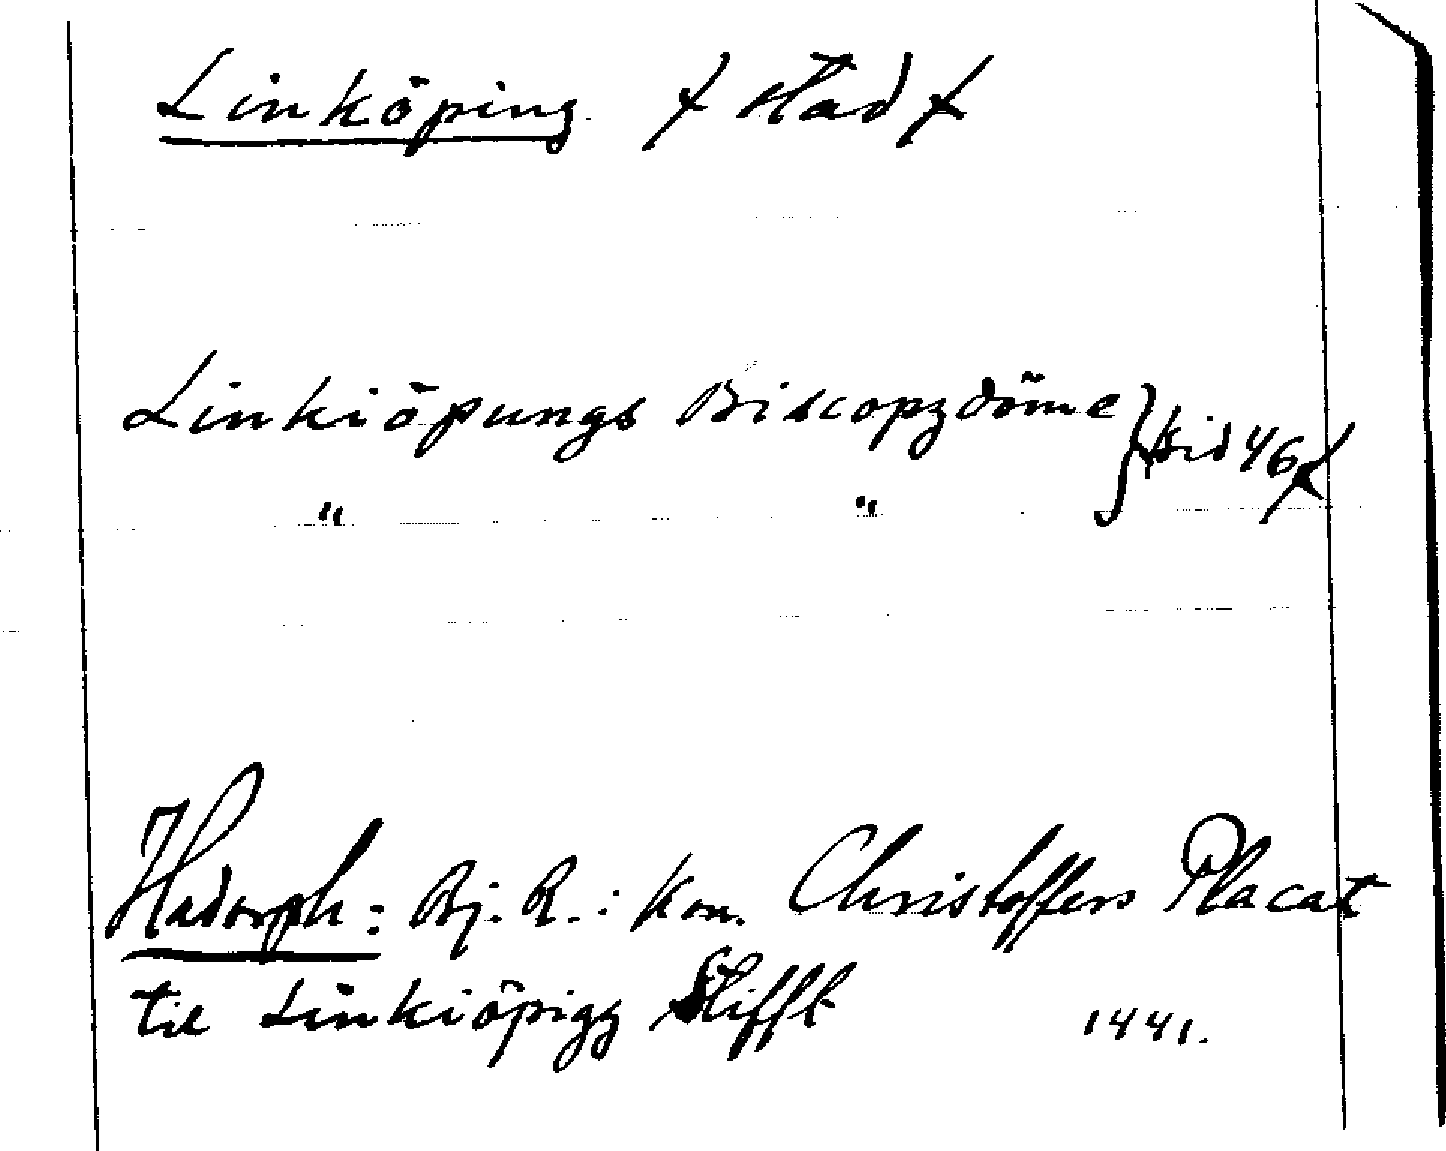 Linköping. ⨯ stad ⨯
Linkiöpungs Biscopzdöme } ⨯ sid 46 ⨯
" "
Hadorph: Bj. R.: Kon. Christoffers Placat
til Linkiöpigz Stifft 1441.